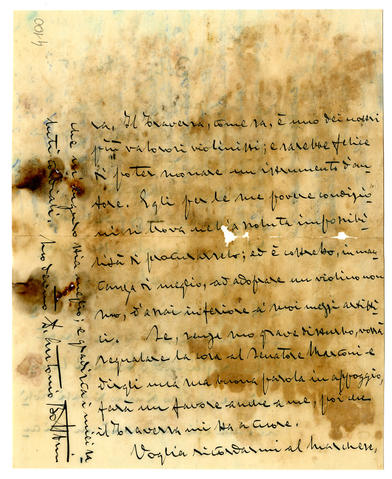 4100
ra. Il Traversa, come sa, è uno dei nostri
più valorosi violinisti; e sarebbe felice
di poter suonare un istrumento d'au-
tore. Egli per le sue povere condizio-
ni si trova nell'assoluta impossibi-
lità di procurarselo; ed è costretto, in man-
canza di meglio, ad adoprare un violino nuo-
vo, d'assai inferiore a' suoi mezzi artisti-
ci. Se, senza suo grave disturbo, vorrà
segnalare la cosa al Senatore Marconi e
dirgli una sua buona parola in appoggio,
farà un favore anche a me, poi che
il Traversa mi sta a cuore.
Voglia ricordarmi al Marchese,
che mi auguro stia meglio; e gradisca i miei sa-
luti cordiali. Suo dev.